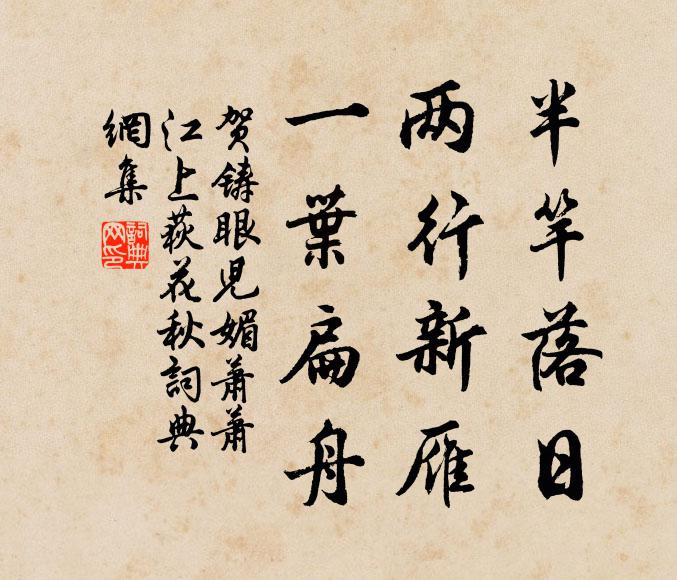 半竿落日
两行新雁
一葉扁舟
贺鑄眼児媚蕭蕭
江上荻花秋詞典
網集
詞典网印